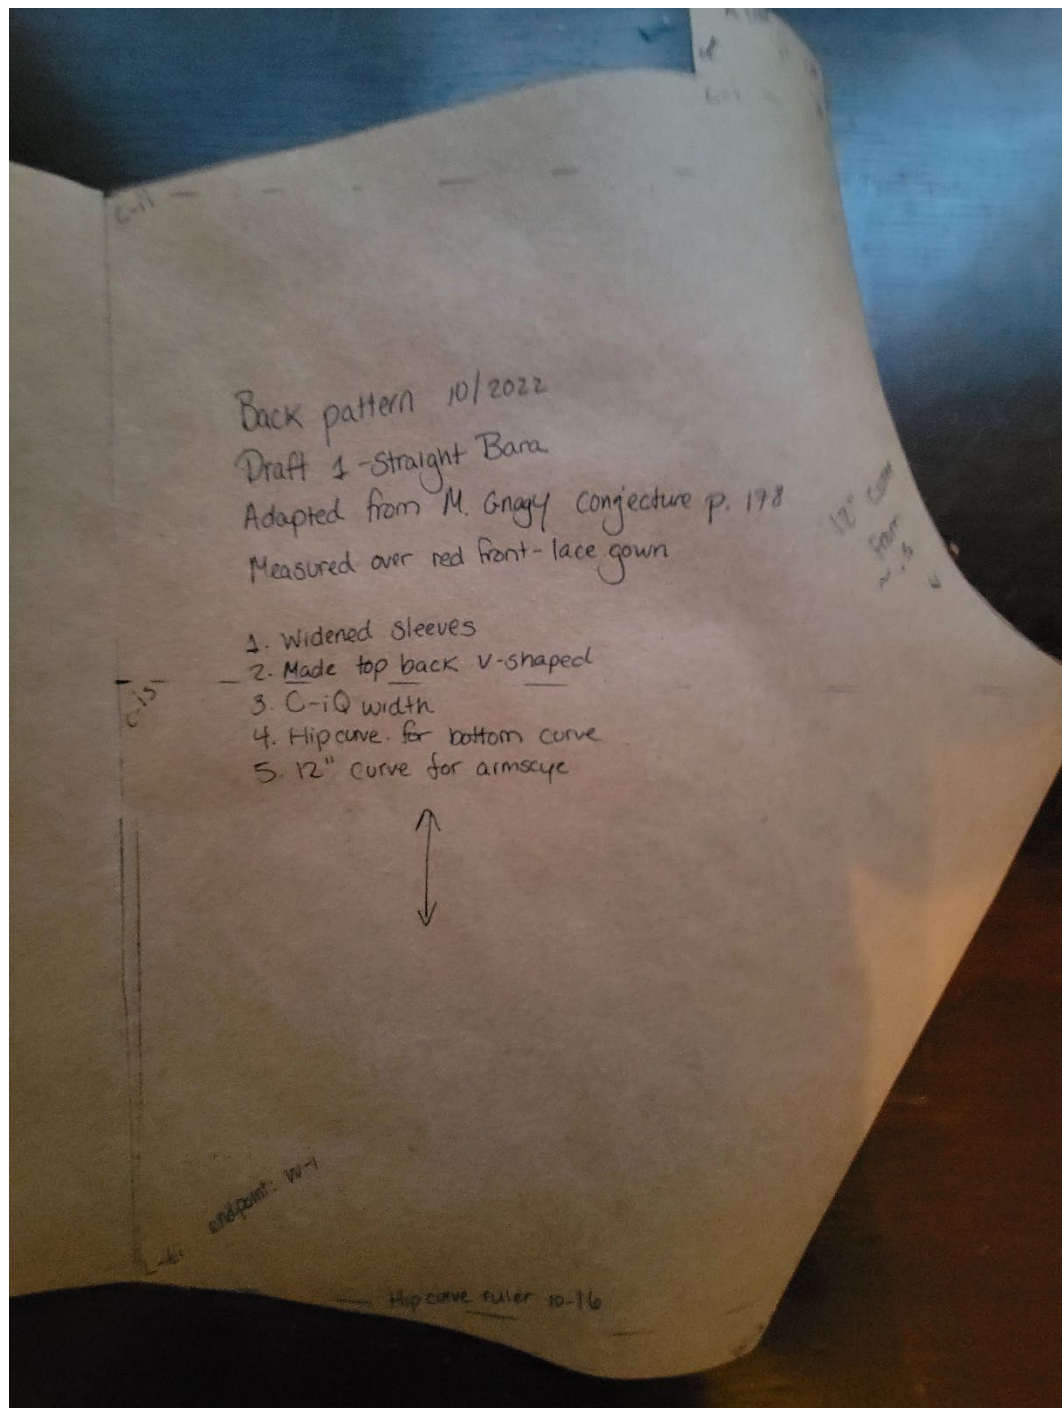 C-11
Back pattern 10/2022
Draft 1 - Straight Bara
Adapted from M. Gnagy Conjecture p. 178
Measured over red front-lace gown
12"
from
.5
1. Widened sleeves
2. Made top back v-shaped
3. C-iQ width
4. Hipcurve for bottom curve
5. 12" curve for armscye
C-is
endpoint: W-1
Hip curve ruler 10-16